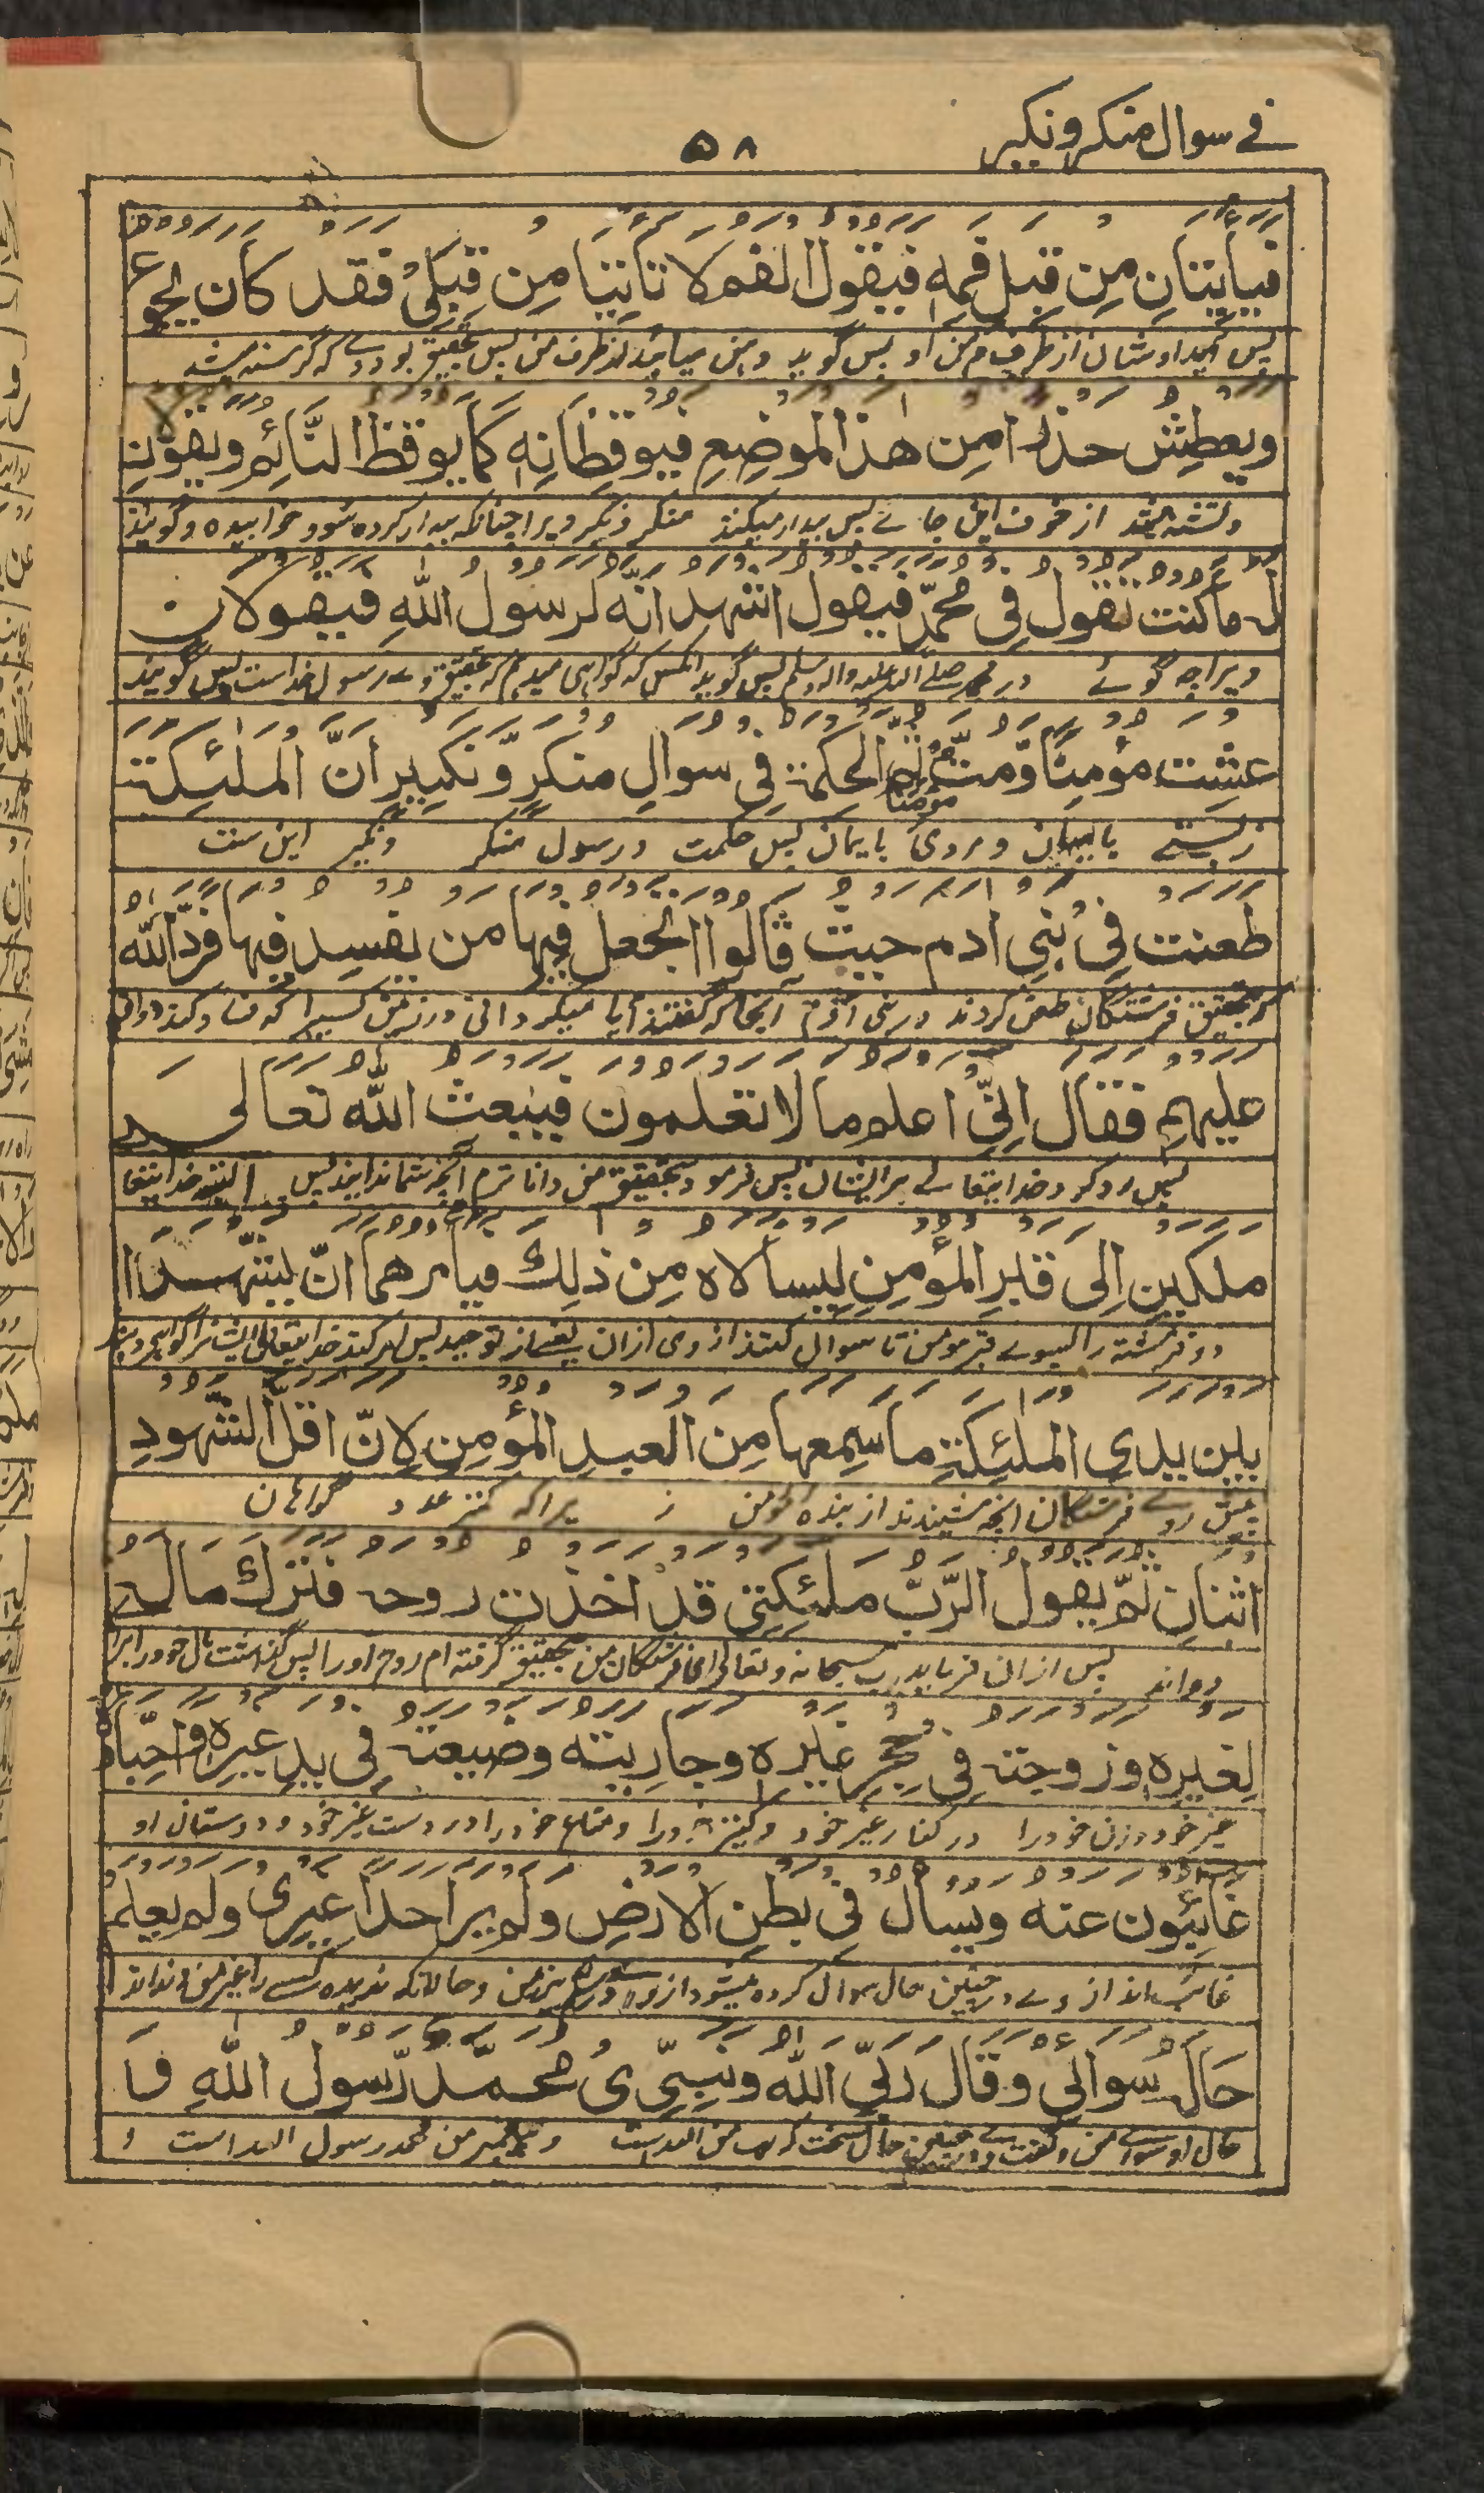 في سوال منكر ونكير
٥٨
فيأتيان من قبل فمه فيقول الفم لا تأتينا من قبلي فقد كان يجوع
پس آیند اوشان از طرف دهن او پس گوید دهن میائید از طرف من پس تحقیق بود وے که گرسنه میشد
ويعطش حذرا من هذا الموضع فيوقظانه كما يوقظ النائم ويقولان
وتشنه میشد از خوف این جاے پس بیدار میکنند منکر ونکیر ویرا چنانکه بیدار کرده شود خوابیده وگویند
له ما كنت تقول في محمد فيقول اشهد انه لرسول الله فيقولان
ویرا چه گوئے در محمد صلے الله علیه واله وسلم پس گوید آنکس که گواهی میدهم که تحقیق وے رسول خداست پس گویند
عشت مؤمنا ومت مؤمنا ثم الحكمة في سوال منكر ونكير ان الملئكة
زیستے با ایمان ومردی با یمان پس حکمت در سول منکر ونکیر این ست
طعنت في بني ادم حيث قالوا اتجعل فيها من يفسد فيها فرد الله
که تحقیق فرشتگان طعن کردند در بنی آدم آنجا که گفتند آیا میگردانی در زمین کسیرا که فساد کند دران
عليهم فقال اني اعلم ما لا تعلمون فيبعث الله تعالى
پس رد کرد خدایتعالے بر ایشان پس فرمود بتحقیق من داناترم آنچه شما ندانید پس البته خدایتعا
ملكين الى قبر المؤمن ليسألاه من ذلك فيأمرهما ان يشهدا
دو فرشته را بسوے قبر مومن تا سوال کنند از وی ازان یعنے از توحید پس امر کند خدایتعالی ایشانرا گواهی دهند
بين يدي الملئكة ما سمعها من العبد المؤمن لان اقل الشهود
پیش روے فرشتگان انچه شنیدند از بنده مومن زیراکه کمتر عدد گواهان
اثنان ثم يقول الرب ملئكتي قد اخذت روحه فترك ماله
دواند پس ازان فرماید رب سبحانه وتعالی اے فرشتگان من تحقیق گرفته ام روح او را پس گذاشت مال خود را برا
لغيره وزوجته في حجر غيره وجاريته وضيعته في يد غيره واحباؤه
غیر خود وزن خود را در کنار غیر خود وکنیز خود را ومتاع خود را در دست غیر خود ودوستان او
غائبون عنه ويسأل في بطن الارض ولم ير احدا غيري ولم يعلم
غائب اند از وے درچنین حال سوال کرده میشود از وے در زیر زمین وحالانکه ندیده کسے را غیر من وندانند
حال سوالي وقال ربي الله ونبيي محمد رسول الله فا
حال او سواے من وگفت وے در چنین حال سخت که رب من الله است وپیغمبر من محمد رسول الله است و